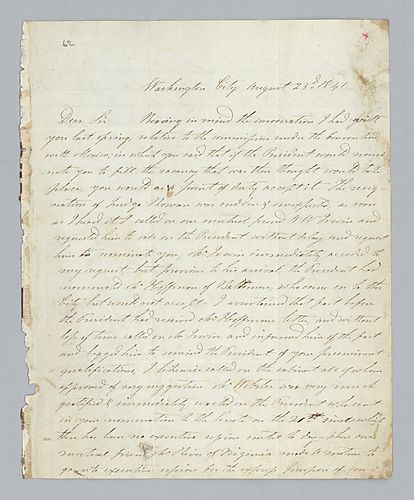 62
Washington City August 23d. 1841
Dear Sir. Bearing in mind the conversation I had with
you last spring, relative to the commission under the convention
with Mexico; in which you said that if the President would nomi-
nate you to fill the vacancy that was then thought would take
place, you would as a point of duty accept it. The resig-
nation of Judge Rowan was sudden & unexpected, as soon
as I heard it I called on our mutual friend W W Irwin and
requested him to call on the President without delay and request
him to nominate you, Mr Irwin immediately acceded to
my request, but previous to his arrival the President had
nominated Mr Hoffman of Baltimore, who came on to the
City but would not accept. I ascertained that fact before
the President had received Mr Hoffmans letter, and without
loss of time called on Mr Irwin and informed him of the fact
and begged him to remind the President of your preeminent
qualifications, I likewise called on the cabinet all of whom
approved of my suggestion. Mr Webster was very much
gratified & immediately waited on the President who sent
in your nomination to the Senate on the 20th inst. which
there has been no executive session until to day when our
mutual friend Mr Rives of Virginia made a motion to
go into executive session for the express purpose of con-